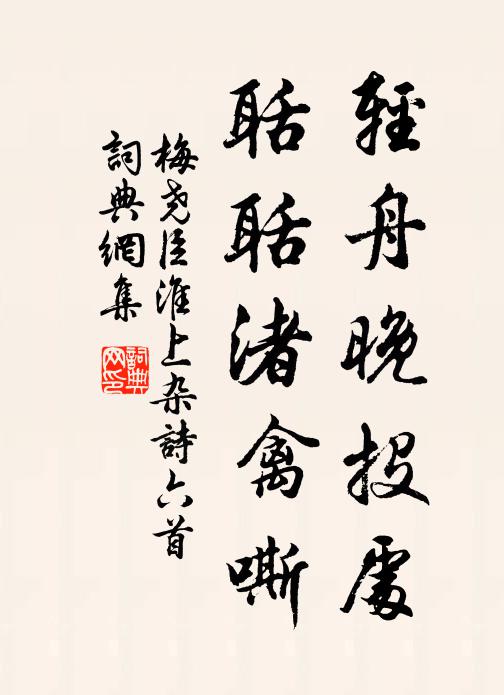 輕舟晚投處
聒聒渚禽嘶
梅尧臣淮上杂詩六首
詞典網集
詞典网印